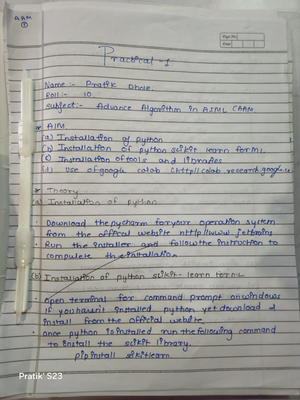 AAM
①
Page No.
Date
Practical - 1
Name :- Pratik Dhole.
Roll :- 10
Subject :- Advance Algorithm in AIML CAAM.
* AIM
(a) Installation of python
(b) Installation of python scikit learn for ML.
(c) Installation of tools and libraries
(d) Use of google colab (http//colab research.google.c
* Theory
(a) Installation of python
· Download the pycharm for your operation system
from the offical website http//www jetbrains
· Run the installer and follow the instruction to
compulete the installation
(b) Installation of python scikit-learn for ML
· open terminal for command prompt on windows
if you haven't installed python yet download &
install from the official website
· once python is installed run the following command
to install the scikit library.
pip install sikitlearn.
Pratik' S23